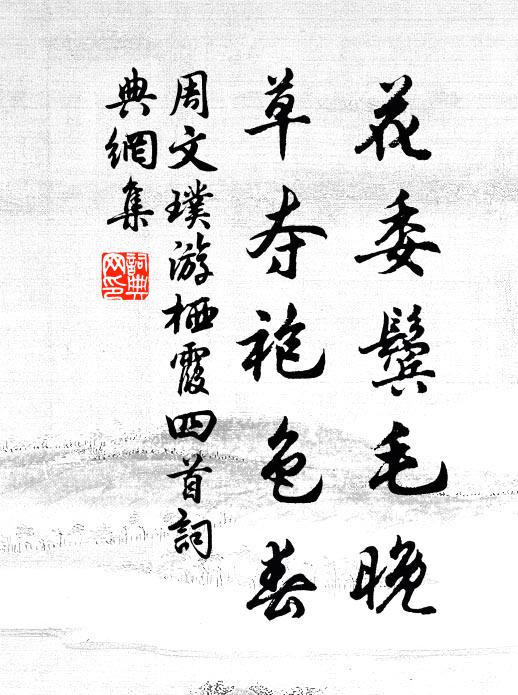 花委鬓毛晚
草夺袍色春
周文璞游栖霞四首詞
典網集
詞典
网印